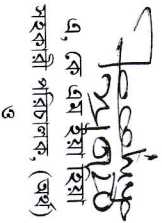 এ, কে এম ইয়াহিয়া
সহকারি পরিচালক, (অর্থ)
ও